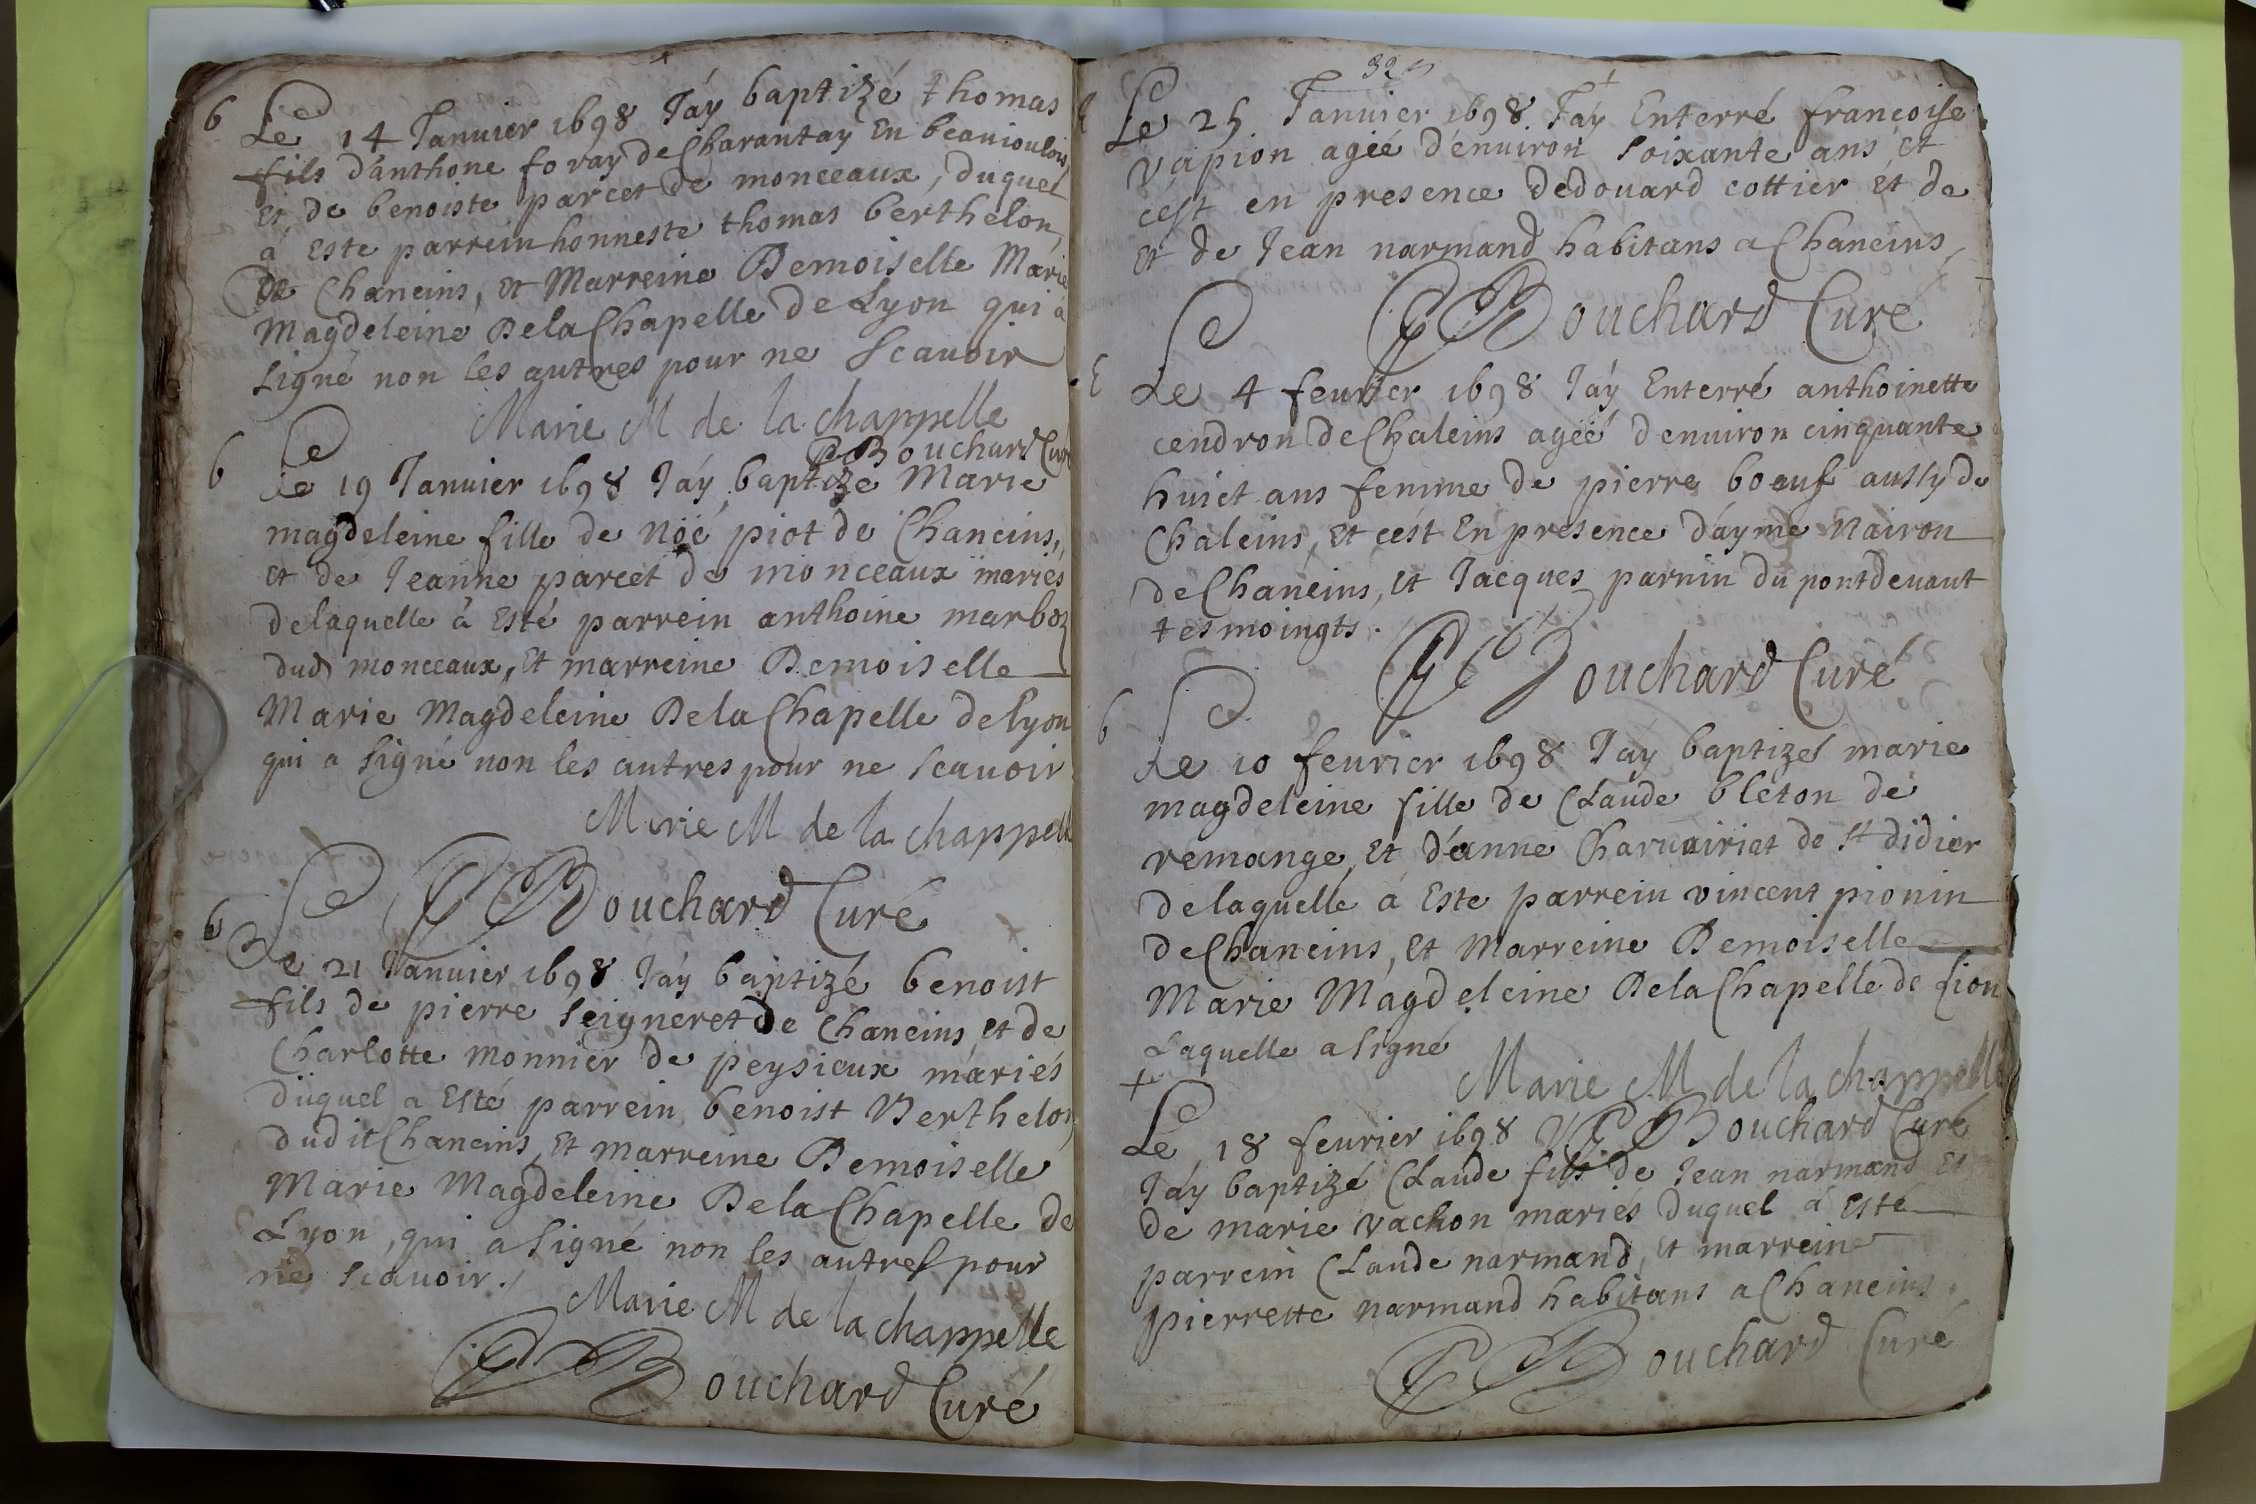 b
Le 14 Januier 1698 J'áy baptizé thomas
fils d'anthone foray de Charantay En beauioulois
Et de benoiste parcet de monceaux, duquel
à Este parrein honneste thomas berthelon,
De Chaneins, Et Marreine Demoiselle Marie
Magdeleine De la Chapelle de Lyon qui à
signé non les autres pour ne scauoir
Marie M de la chappelle
Bouchard Curé
b
Le 19 Januier 1698 J'áy baptizé Marie
magdeleine fille de Nöé piot de Chaneins,
et de Jeanne parcet de monceaux mariés
delaquelle à Esté parrein anthoine marboz
dud monceaux, Et marreine Demoiselle
Marie Magdeleine De la Chapelle de lyon
qui a signé non les autres pour ne scauoir
Marie M de la chappelle
Bouchard Curé
b
Le 21 Januier 1698 J'áy baptizé benoist
fils de pierre seigneret de Chaneins et de
Charlotte monnier de peysieux mariés
duquel a Esté parrein benoist Berthelon
dudit Chaneins, Et marreine Demoiselle
Marie Magdeleine De la Chapelle de
Lyon, qui a signé non les autres pour
ne scauoir.
Marie M de la chappelle
Bouchard Curé
Le 25 Januier 1698. J'áy Enterré francoise
vapion agéé d'énuiron soixante ans, et
cést en presence dedouard cottier et de
Et de Jean narmand habitans a Chaneins,
Bouchard Curé
E
Le 4 feurier 1698 J'áy Enterré anthoinette
cendron de Chaleins agéé d'enuiron cinquante
huict ans femme de pierre boeuf aussy de
Chaleins, Et cést En presence d'ayme Nairon
de Chaneins, Et Jacques parnin du pontdeuaut
tesmoingts.
Bouchard Curé
b
Le 10 feurier 1698 J'áy baptizé marie
magdeleine fille de Claude bleton de
remange Et d'anne Charuairiat de St didier
delaquelle á Este parrein vincent pionin
de Chaneins, Et Marreine Demoiselle
Marie Magdeleine De la Chapelle de Lion
Laquelle a signé
Marie M de la chappelle
Bouchard Curé
Le 18 feurier 1698
J'áy baptizé Claude fils de Jean narmand Et
de marie vachon mariés duquel á Esté
parrein Claude narmand, Et marreine
pierrette narmand habitans a Chaneins.
Bouchard Curé